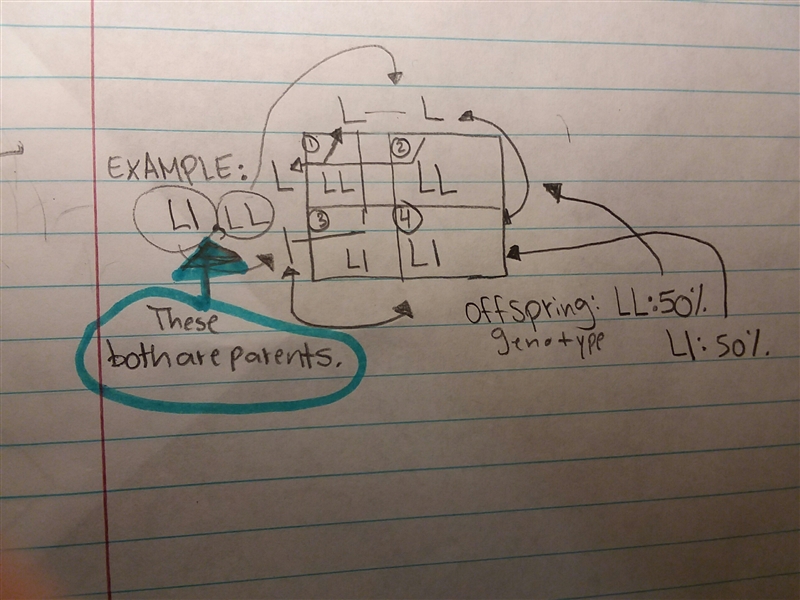 EXAMPLE:
L — L
① ②
L LL LL
Ll LL
③ ④
l Ll Ll
These
both are parents.
Offspring: LL: 50%
genotype Ll: 50%.